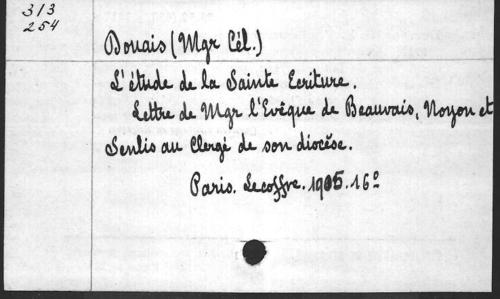 313
254
Douais (Mgr Cél.)
L'étude de la Sainte Ecriture.
Lettre de Mgr l'Evêque de Beauvais, Noyon et
Senlis au Clergé de son diocèse.
Paris. Lecoffre. 1905. 16º